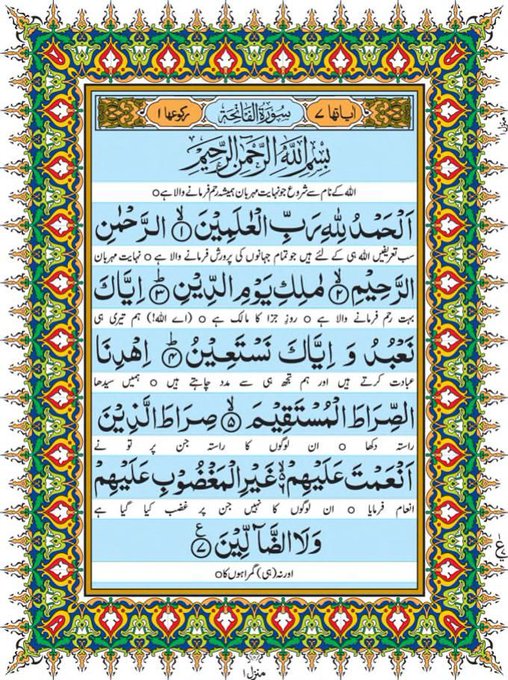 اٰیاتھا ٧ سُوْرَةُ الْفَاتِحَةِ رکوعھا ١
بِسْمِ اللّٰهِ الرَّحْمٰنِ الرَّحِیْمِ
اللہ کے نام سے شروع جو نہایت مہربان ہمیشہ رحم فرمانے والا ہے ○
اَلْحَمْدُ لِلّٰهِ رَبِّ الْعٰلَمِیْنَ ۙ﴿١﴾ الرَّحْمٰنِ
سب تعریفیں اللہ ہی کے لئے ہیں جو تمام جہانوں کی پرورش فرمانے والا ہے ○ نہایت مہربان
الرَّحِیْمِ ۙ﴿٢﴾ مٰلِكِ یَوْمِ الدِّیْنِ ؕ﴿٣﴾ اِیَّاكَ
بہت رحم فرمانے والا ہے ○ روزِ جزا کا مالک ہے ○ (اے اللہ!) ہم تیری ہی
نَعْبُدُ وَ اِیَّاكَ نَسْتَعِیْنُ ؕ﴿٤﴾ اِهْدِنَا
عبادت کرتے ہیں اور ہم تجھ ہی سے مدد چاہتے ہیں ○ ہمیں سیدھا
الصِّرَاطَ الْمُسْتَقِیْمَ ۙ﴿٥﴾ صِرَاطَ الَّذِیْنَ
راستہ دکھا ○ ان لوگوں کا راستہ جن پر تو نے
اَنْعَمْتَ عَلَیْهِمْ ۙ﴿٦﴾ غَیْرِ الْمَغْضُوْبِ عَلَیْهِمْ
انعام فرمایا ○ ان لوگوں کا نہیں جن پر غضب کیا گیا ہے
وَلَا الضَّآلِّیْنَ ﴿٧﴾ ع
اور نہ (ہی) گمراہوں کا ○
منزل
منزل ١